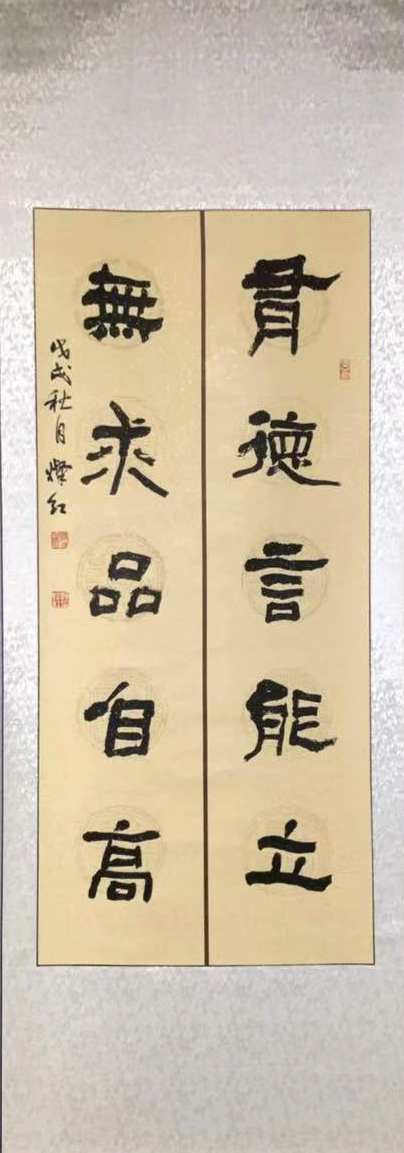 有德言能立
無求品自高
戊戌秋月